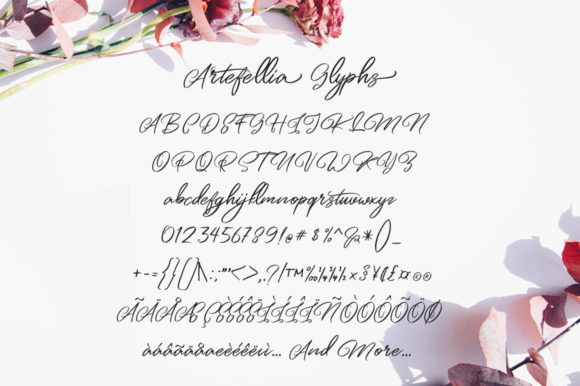 Artefellia Glyphs
ABCDEFGHIJKLMN
OPQRSTUVWXYZ
abcdefghijklmnopqrstuvwxyz
0123456789!@#$%^&*()_
+-={}[]|\:;"'<>,.?/™‰¼½
ÃÄÅÆÇÈÉÊËÌÍÎÏÑÒÓÔÕÖØ
àáâãäåæèéêëù... And More...